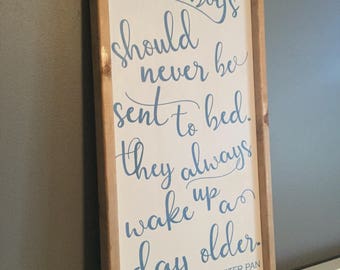 boys
should
never be
sent to bed.
they always
wake up a
day older.
PETER PAN